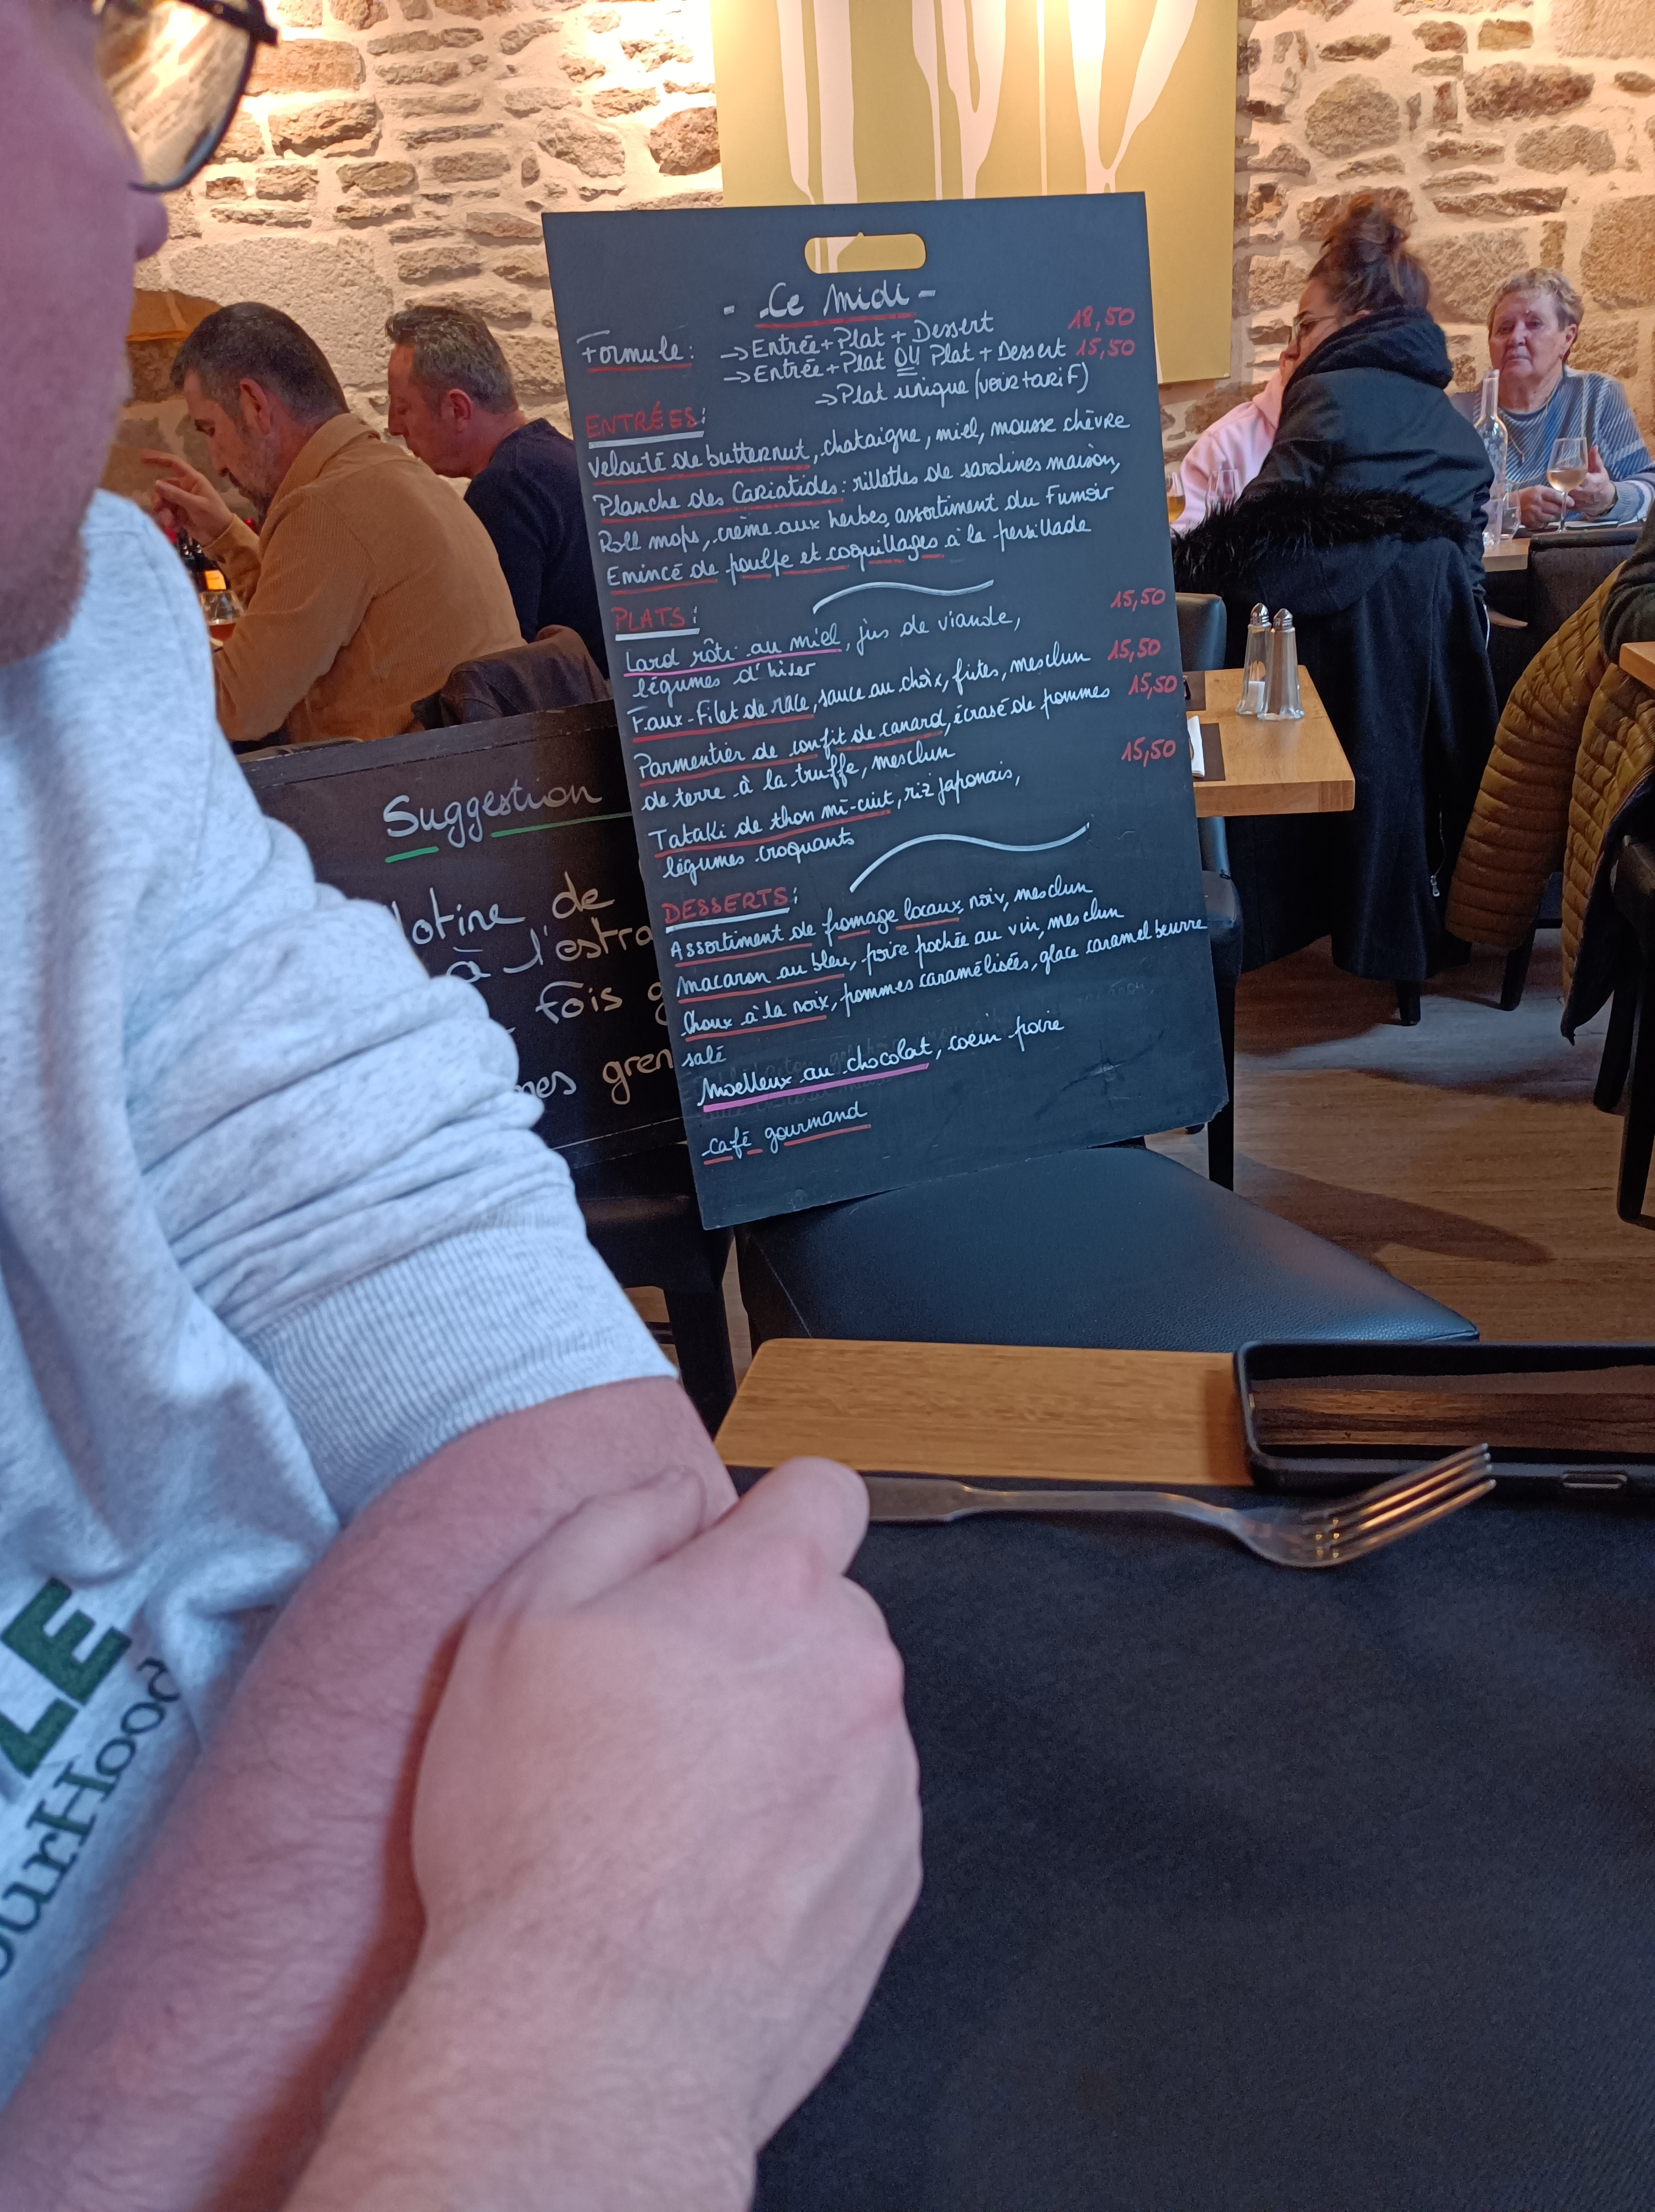 - Ce Midi -
Formule: → Entrée + Plat + Dessert 18,50
→ Entrée + Plat OU Plat + Dessert 15,50
→ Plat unique (voir tarif)
ENTRÉES:
Velouté de butternut, chataigne, miel, mousse chèvre
Planche des Cariatides: rillettes de sardines maison,
Roll mops, crème aux herbes, assortiment du Fumoir
Emincé de poulpe et coquillages à la persillade
PLATS:
Lard rôti au miel, jus de viande, 15,50
légumes d'hiver
Faux-Filet de race, sauce au choix, frites, mesclun 15,50
Parmentier de confit de canard, écrasé de pommes 15,50
de terre à la truffe, mesclun
Tataki de thon mi-cuit, riz japonais, 15,50
légumes croquants
DESSERTS:
Assortiment de fromage locaux, noix, mesclun
Macaron au bleu, poire pochée au vin, mesclun
Choux à la noix, pommes caramélisées, glace caramel beurre
salé
Moelleux au chocolat, coeur poire
Café gourmand
Suggestion
lotine de
à l'estra
fois g
mes gren
LE
ourHood